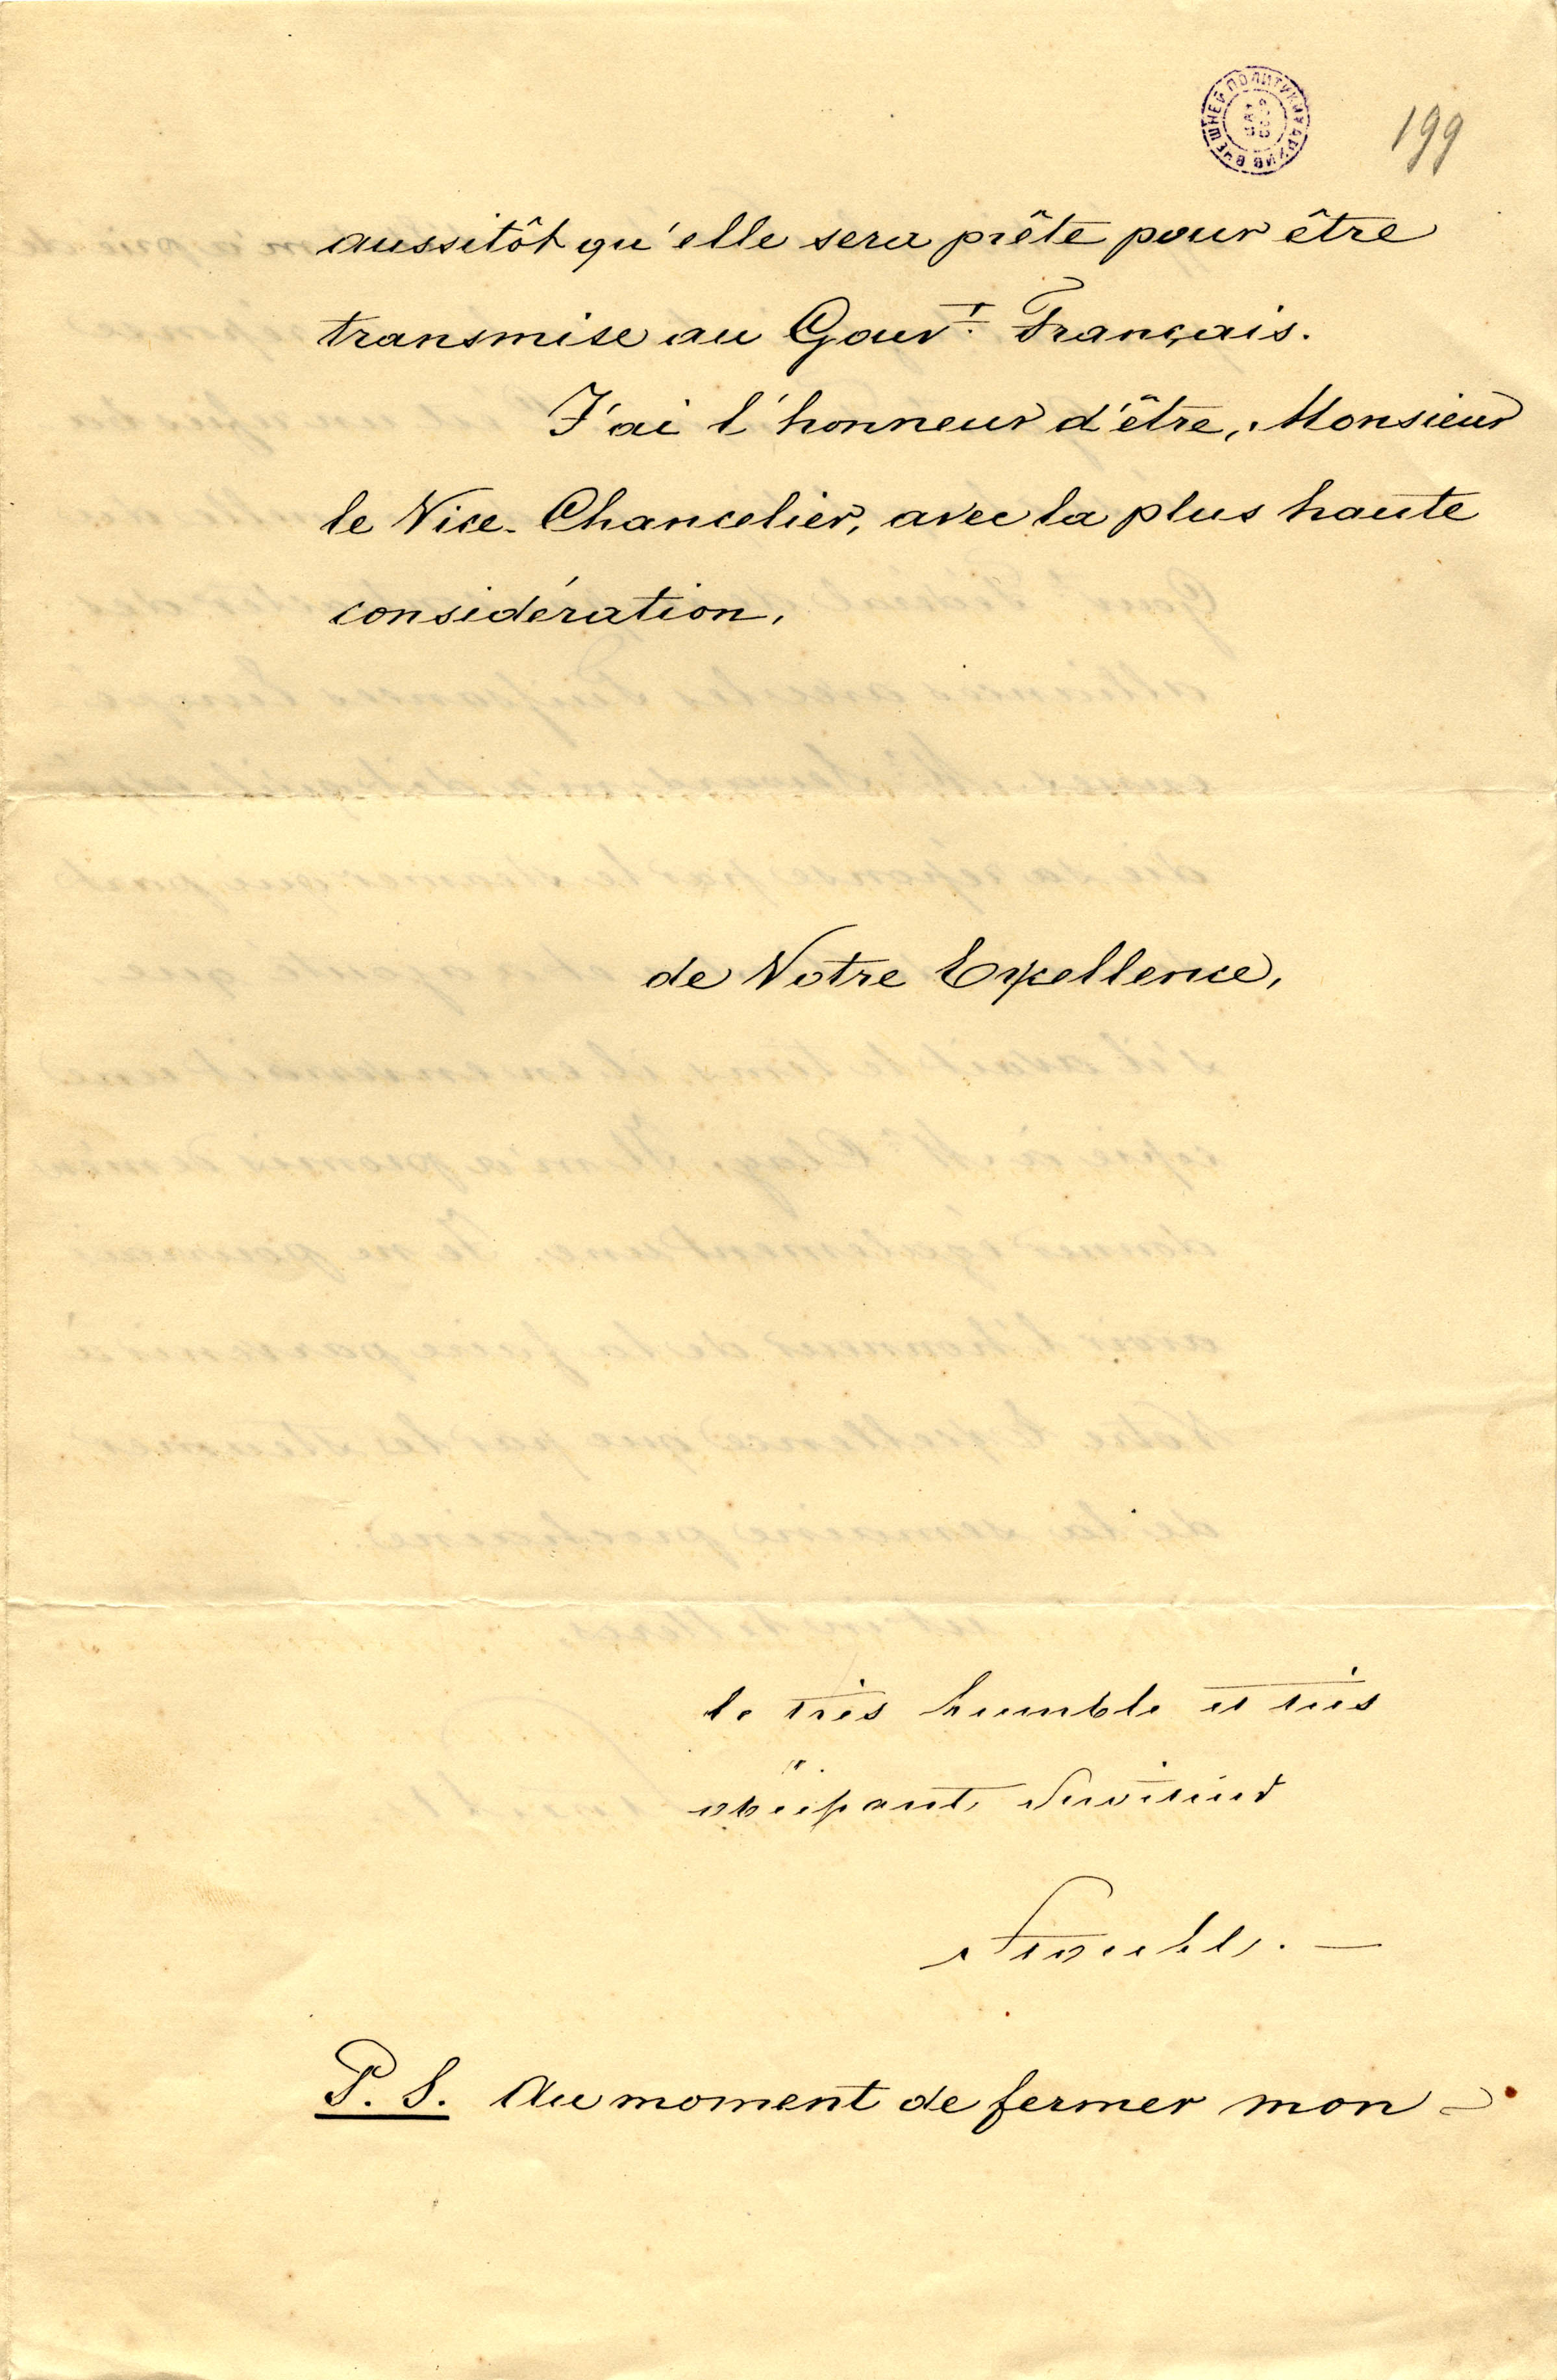 АРХИВ ВНЕШНЕЙ ПОЛИТИКИ
199
aussitôt qu'elle sera prête pour être
transmise au Gouvt. Français.
J'ai l'honneur d'être, Monsieur
le Vice-Chancelier, avec la plus haute
considération,
de Votre Excellence,
le très humble et très
obéissant Serviteur
Stoeckl. —
P. S. Au moment de fermer mon